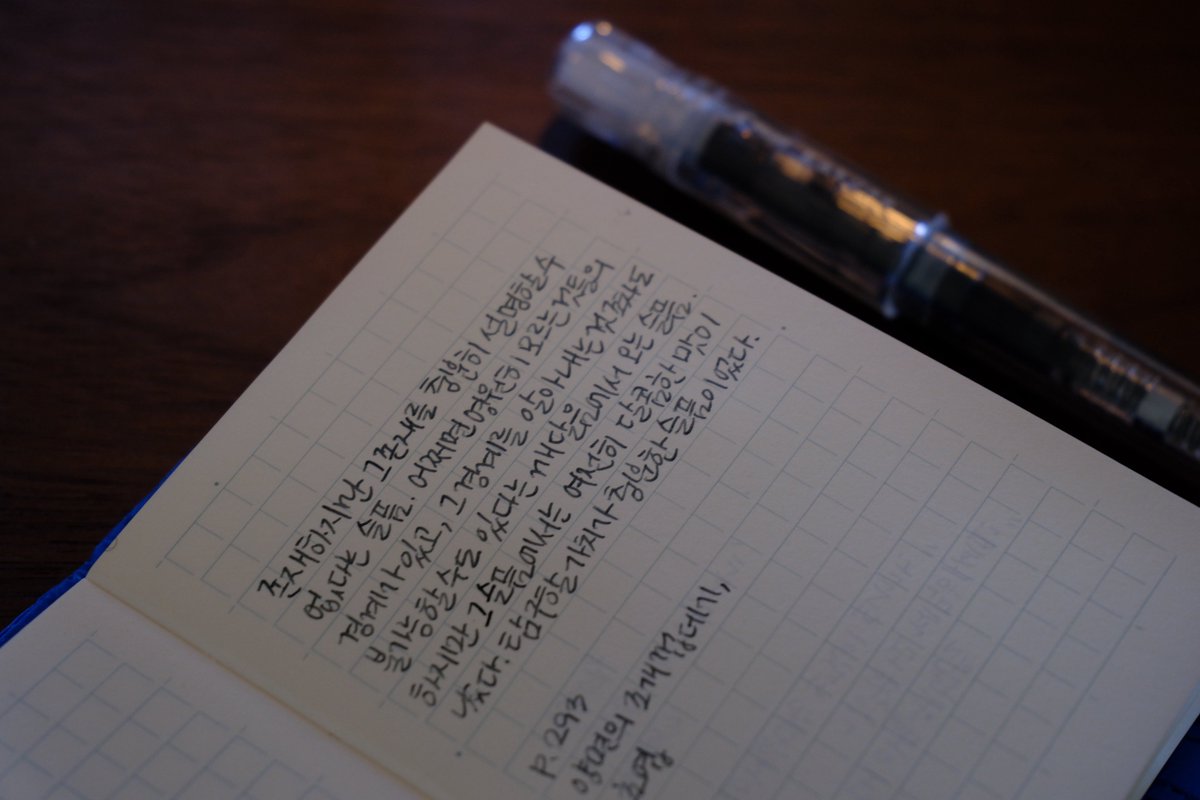 존재하지만 그 존재를 형언히 설명할 수
없다는 슬픔. 어쩌면 영원히 모르는 것들의
경계가 있고, 그 경계를 알아내는 것조차도
불가능할 수도 있다는 깨달음에서 오는 슬픔.
하지만 그 슬픔에서는 여전히 달콤한 맛이
났다. 탐구할 가치가 충분한 슬픔이었다.
P. 293
양면의 조개껍데기,
초엽